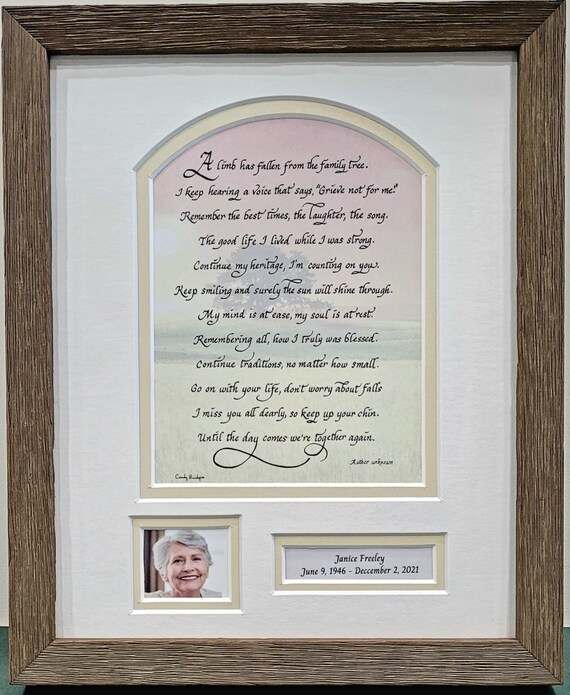 A limb has fallen from the family tree.
I keep hearing a voice that says, "Grieve not for me."
Remember the best times, the laughter, the song.
The good life I lived while I was strong.
Continue my heritage, I'm counting on you.
Keep smiling and surely the sun will shine through.
My mind is at ease, my soul is at rest.
Remembering all, how I truly was blessed.
Continue traditions, no matter how small.
Go on with your life, don't worry about falls
I miss you all dearly, so keep up your chin.
Until the day comes we're together again.
Author unknown
Janice Freeley
June 9, 1946 - Deccember 2, 2021